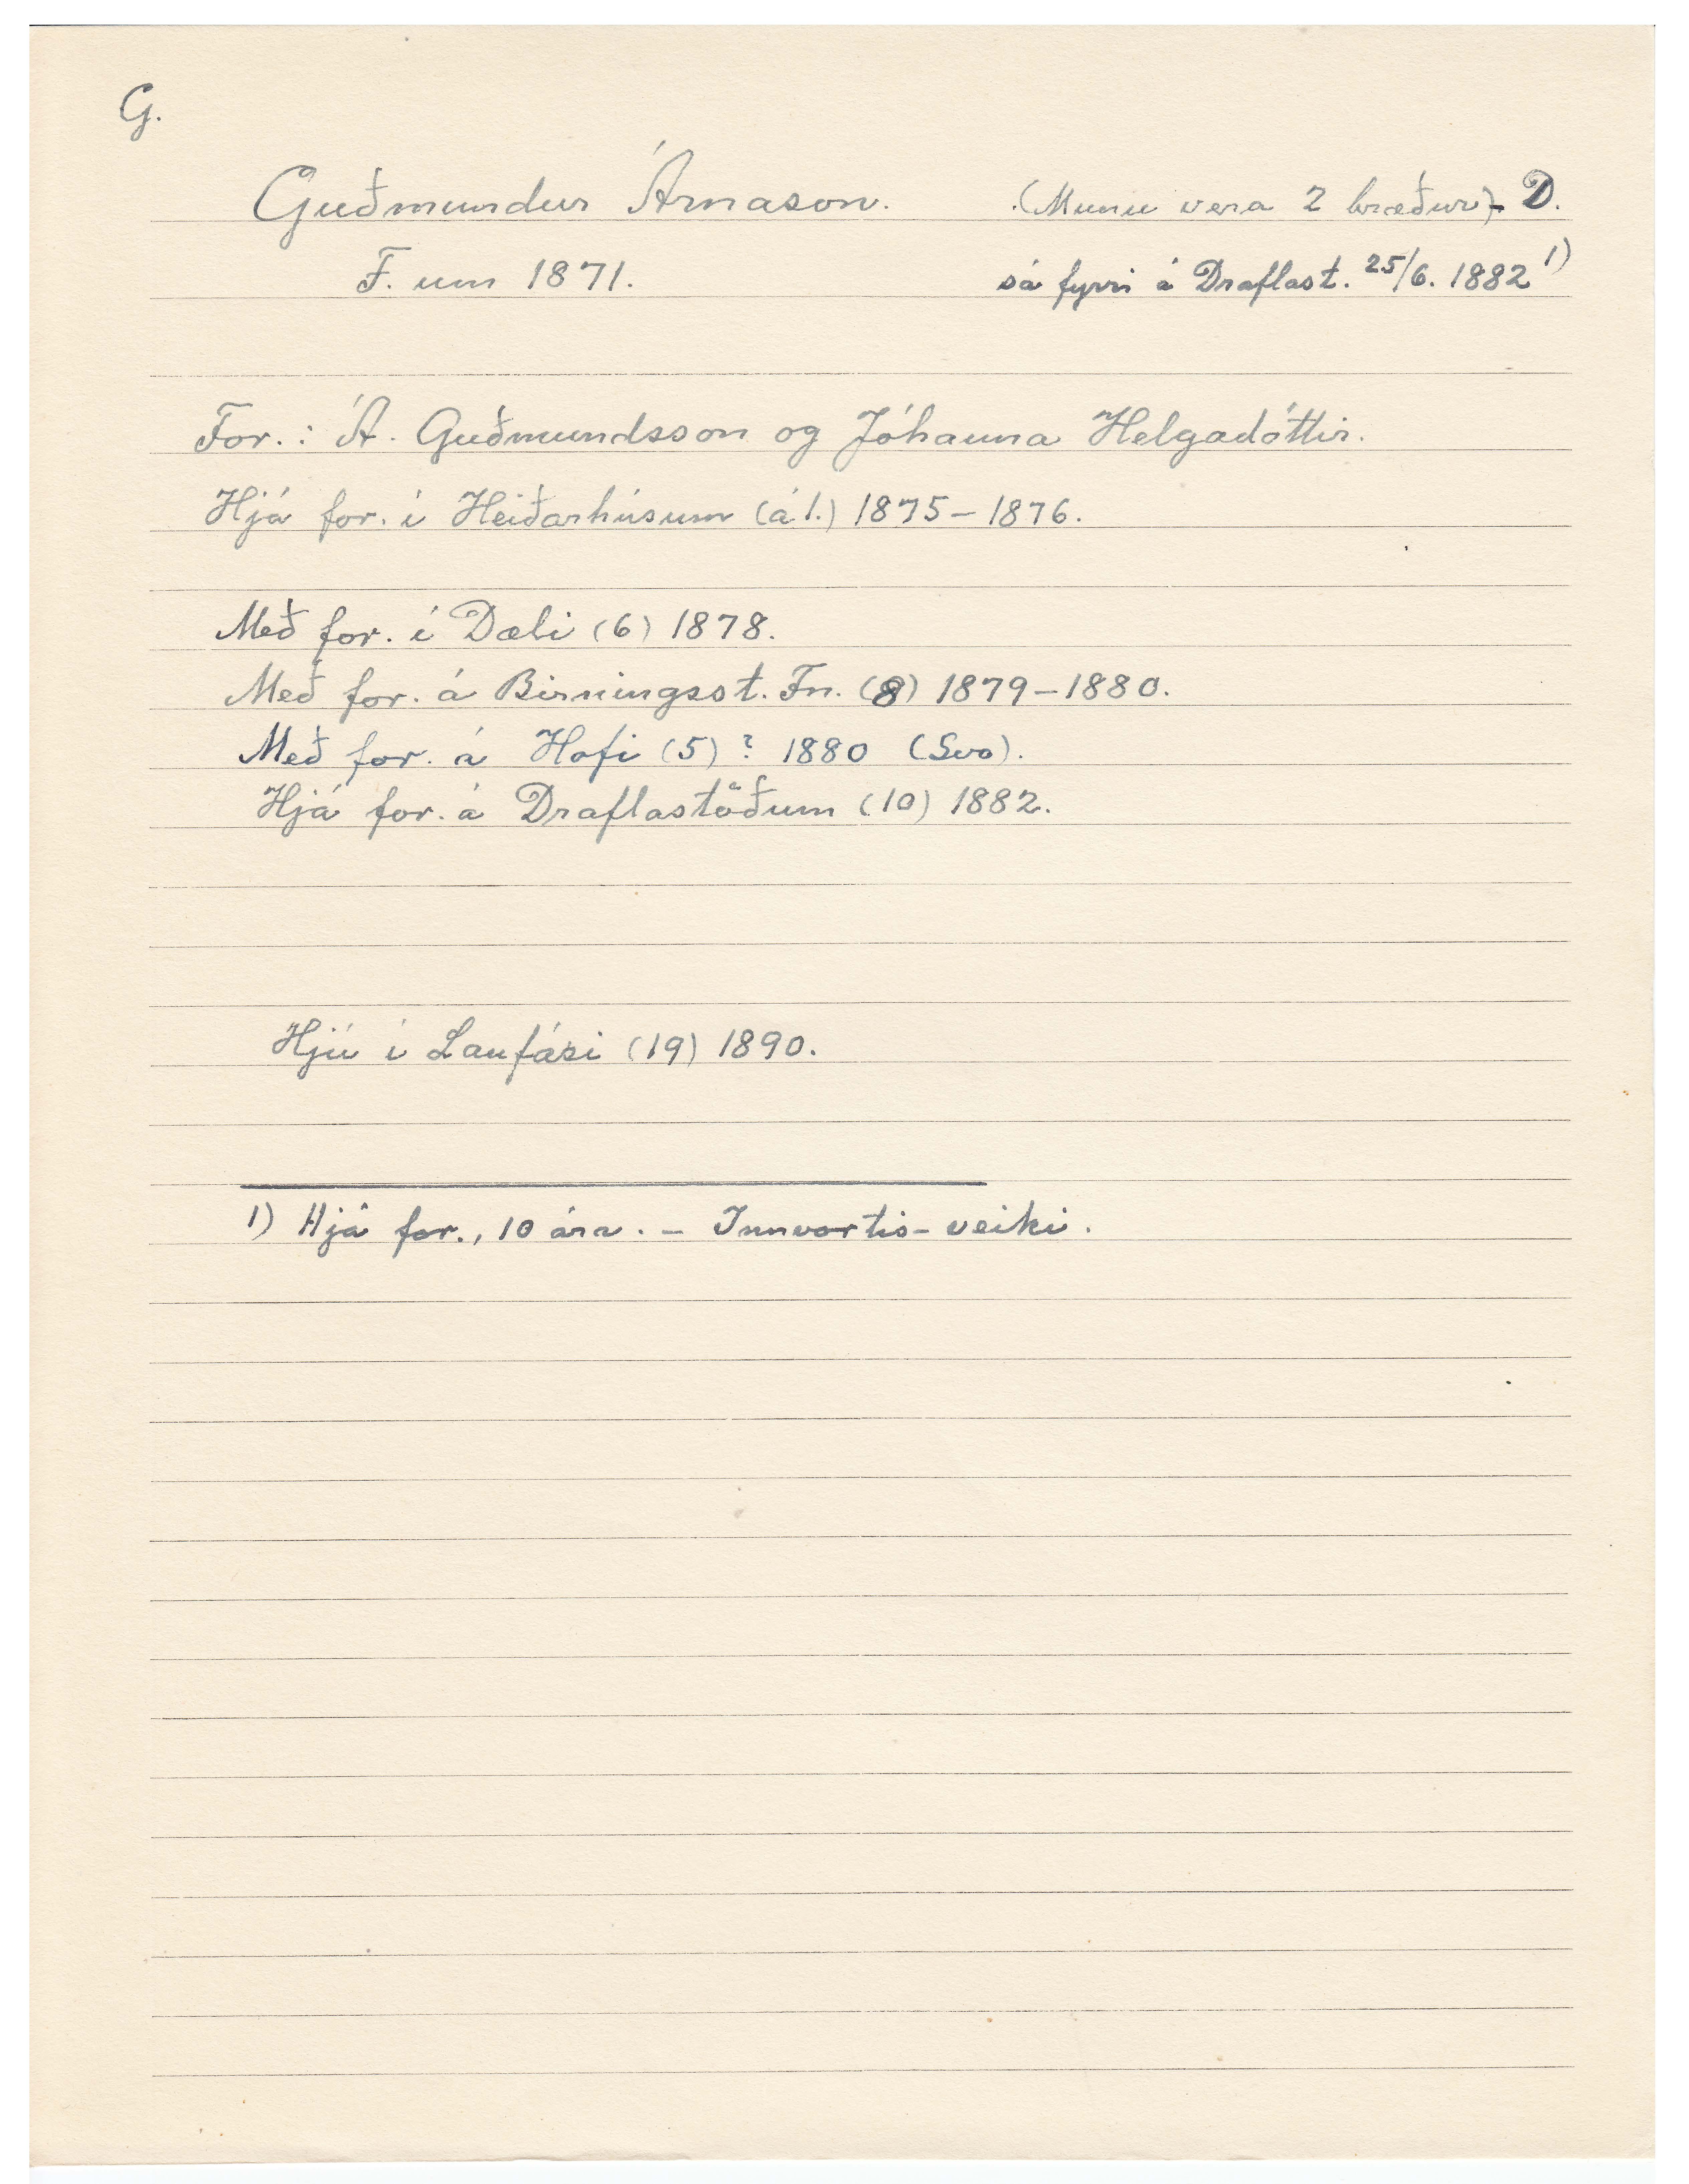 G.
Guðmundur Árnason. (Munu vera 2 bræður) - D.
F. um 1871. sá fyrri á Draflast. 25/6. 1882 1)
For.: Á. Guðmundsson og Jóhanna Helgadóttir.
Hjá for. í Heiðarhúsum (á 1.) 1875-1876.
Með for. í Dæli (6) 1878.
Með for. á Birningsst. Fn. (8) 1879-1880.
Með for. á Hofi (5) ? 1880 (Svo).
Hjá for. á Draflastöðum (10) 1882.
Hjú í Laufási (19) 1890.
1) Hjá for., 10 ára. - Innvortis-veiki.